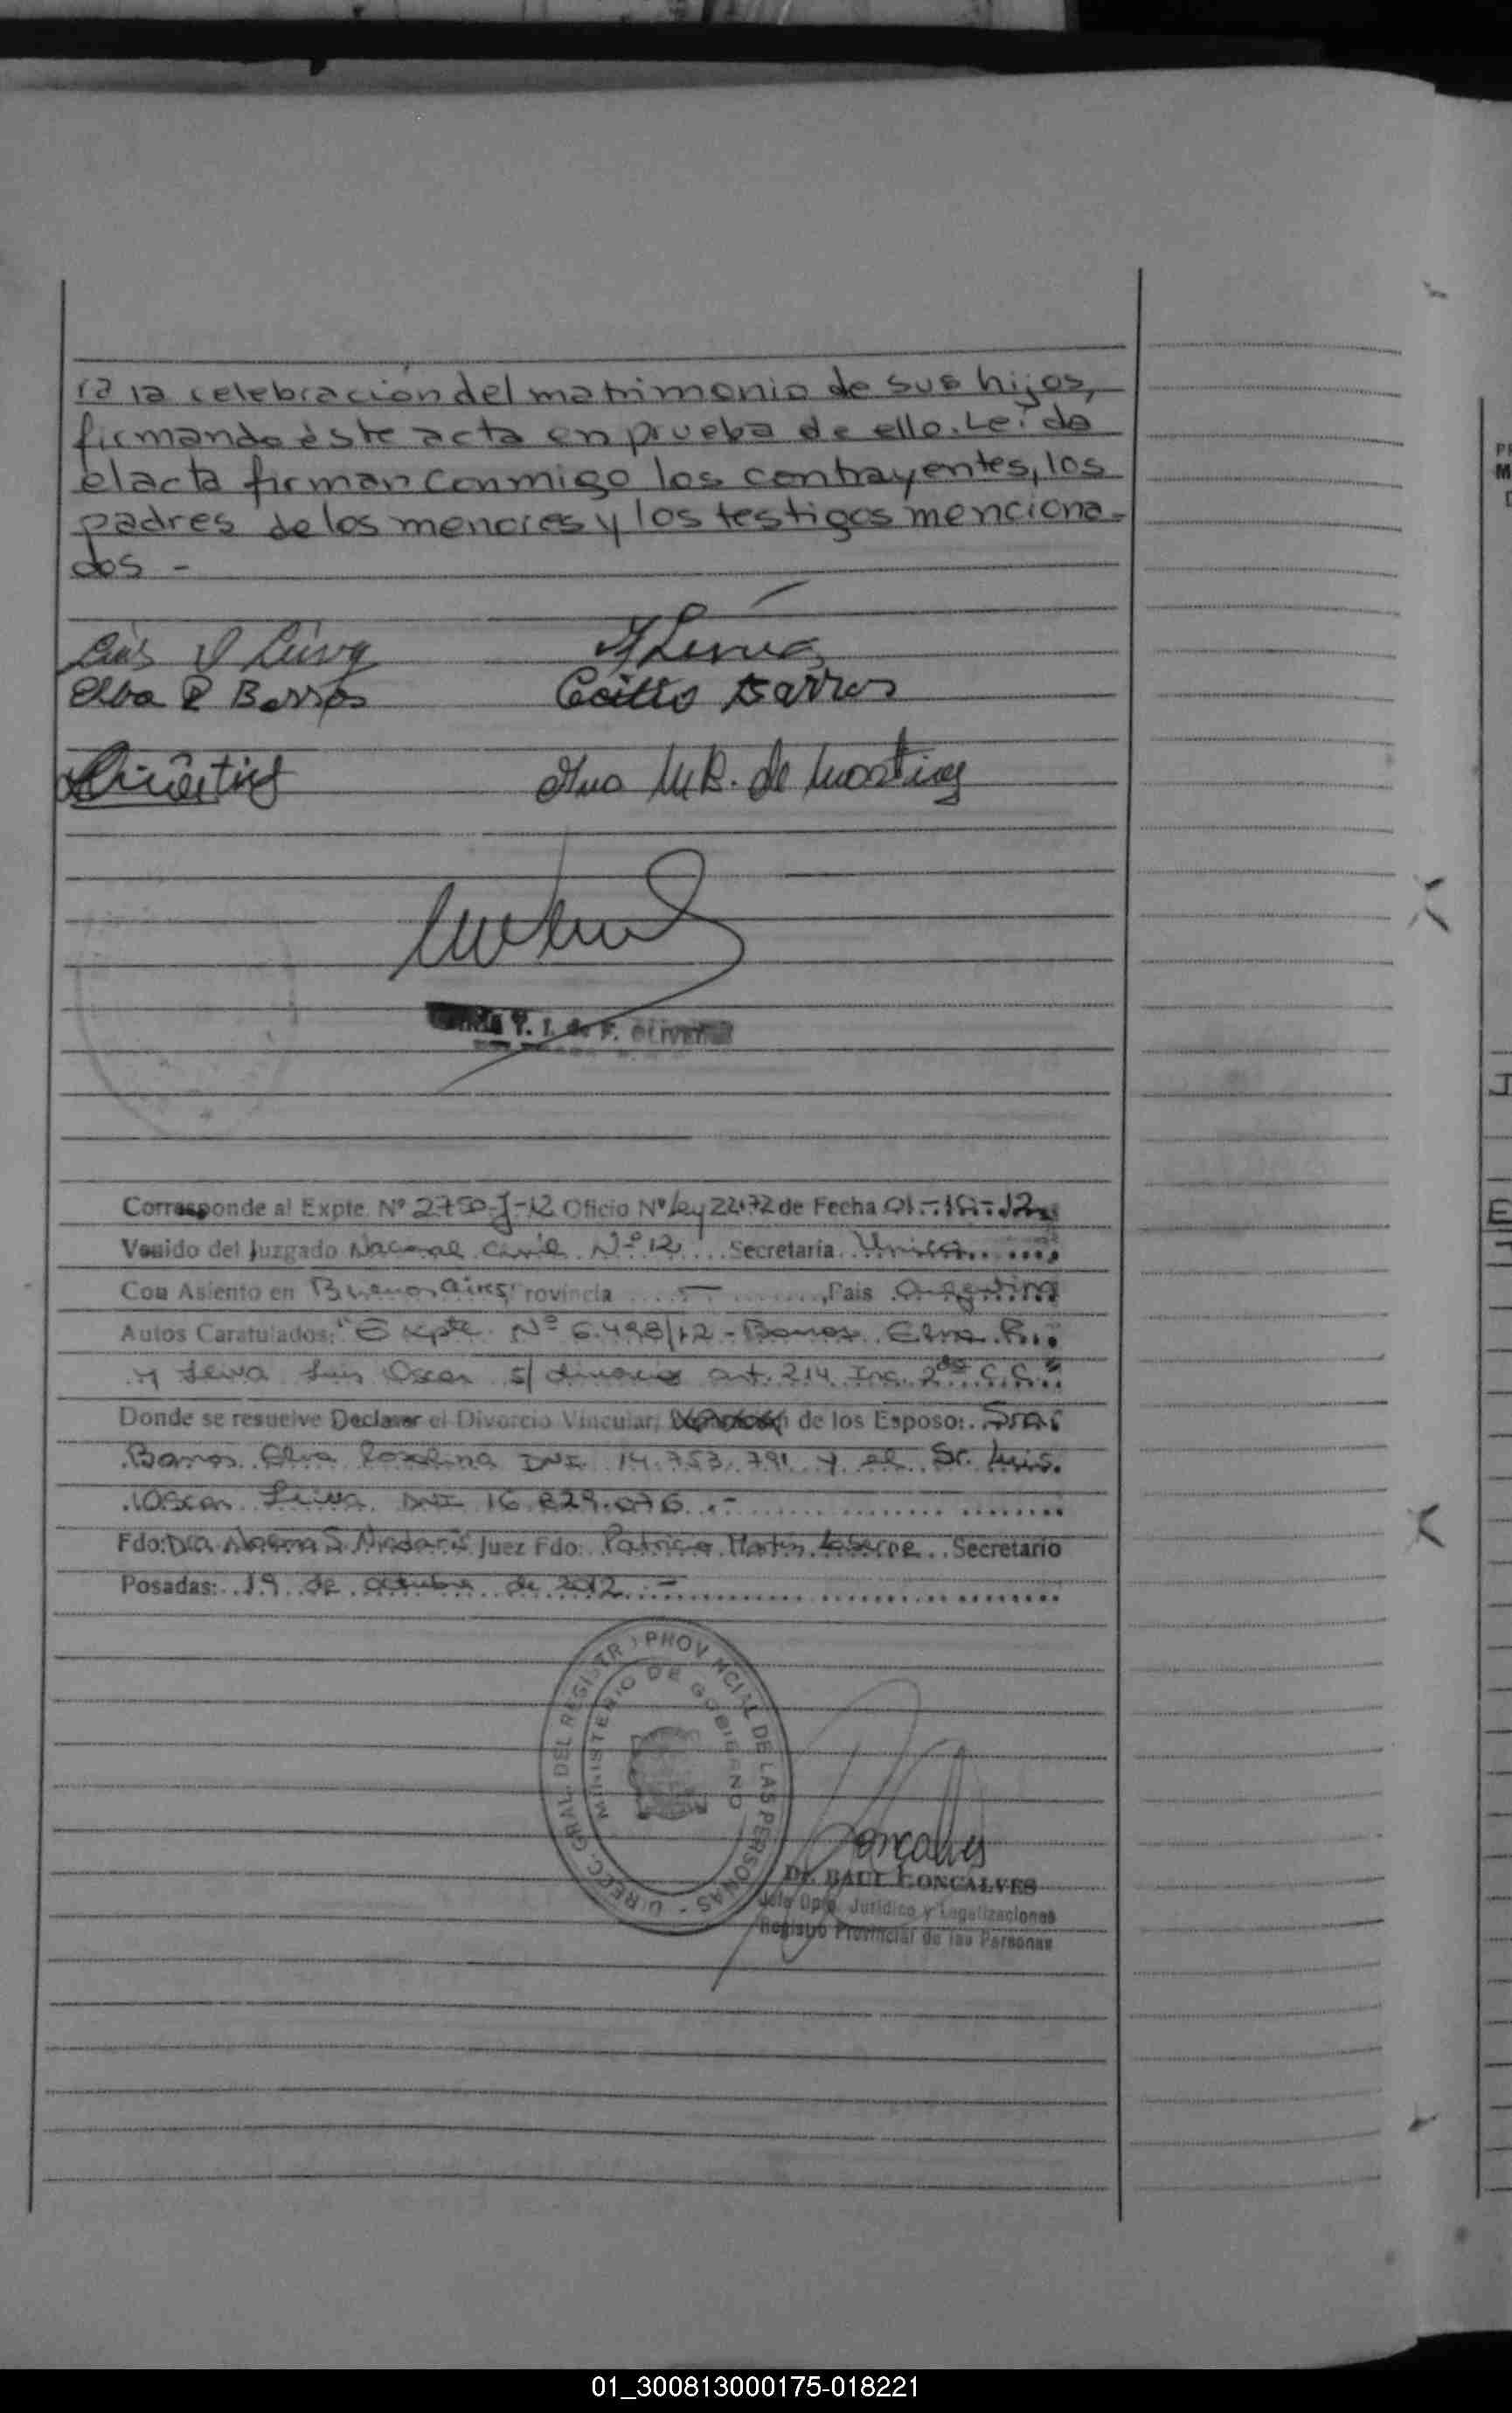 ra la celebración del matrimonio de sus hijos,
firmando éste acta en prueba de ello. Leída
el acta firman conmigo los contrayentes, los
padres de los menores y los testigos menciona-
dos -
Luis O Leiva
Elva R Barros
Barros
Ana M R. de Martinez
Y. I. de F. OLIVEIRA
Corresponde al Expte. Nº 2750-J-12 Oficio Nº Ley 22172 de Fecha 01-10-12
Venido del Juzgado Nacional Civil Nº 12 Secretaría Unica
Con Asiento en Buenos Aires Provincia - , Pais Argentina
Autos Caratulados: "Expte. Nº 6.498/12 - Barros Elva R.
y Leiva Luis Oscar s/ divorcio art. 214 Inc. 2do C.C."
Donde se resuelve Declarar el Divorcio Vincular, de los Esposo: Sra.
Barros Elva Roselina DNI 14.753.791 y el Sr. Luis
Oscar Leiva DNI 16.829.076 .-
Fdo: Dra Juez Fdo: Patricia Martin Secretario
Posadas: 19 de octubre de 2012 -
DIRECC. GRAL. DEL REGISTRO PROVINCIAL DE LAS PERSONAS -
MINISTERIO DE GOBIERNO
Goncalves
Dr. RAUL GONCALVES
Jefe Dpto. Jurídico y Legalizaciones
Registro Provincial de las Personas
01_300813000175-018221